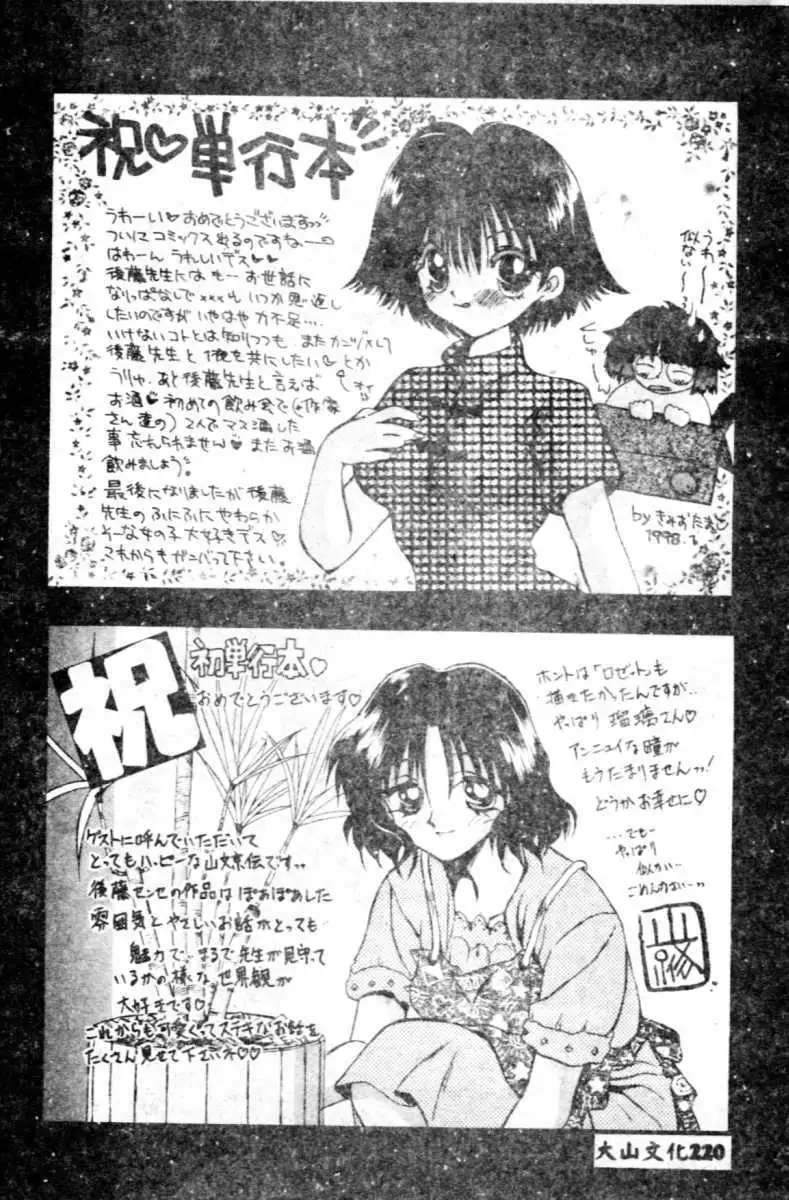 祝♡単行本
うわーい♡おめでとうございますッッ
ついにコミックス出るのですねー
はわーん うれしいデス♡♡
後藤先生にはもーお世話に
なりっぱなしで×××もいつか恩返し
したいのですが いやはや力不足…。
いけないコトとは知りつつも、また
後藤先生と1夜を共にしたい♡とか
うりゃ。あと後藤先生と言えば
お酒♡初めての飲み会で(作家
さん達の)2人でマス酒した
事忘れられません♡またお酒
飲みましょう。
最後になりましたが後藤
先生のふにふにやわらか
そーな女の子大好きデス♡
これからもがンバって下さい
うわ〜〜
似ない〜〜
by きみおたまこ
1998.
祝
初単行本♡
おめでとうございます♡
ゲストに呼んでいただいて
とってもハッピーな山文京伝ですッッ
後藤センセの作品はぽあぽあした
雰囲気とやさしいお話がとっても
魅力で…まるで先生が見守って
いるかの様な世界観が
大好きです♡
これからも可愛くってステキなお話を
たくさん見せて下さいネ♡♡
ホントは「ロゼット」も
描きたかったんですが…
やっぱり瑠璃さん♡
アンニュイな瞳が
もうたまりませんッッ!
どうかお幸せに♡
…でも…
やっぱり
似ない…
ごめんなさい…ッッ
大山文化220